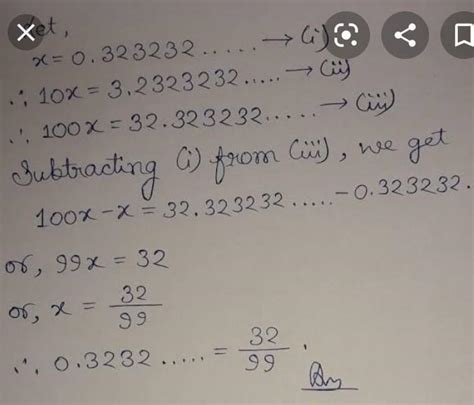 Let,
x = 0.323232..... → (i)
∴ 10x = 3.2323232..... → (ii)
∴ 100x = 32.323232..... → (iii)
Subtracting (i) from (iii), we get
100x - x = 32.323232..... - 0.323232.
or, 99x = 32
or, x = 32/99
∴ 0.3232..... = 32/99 .
Ans